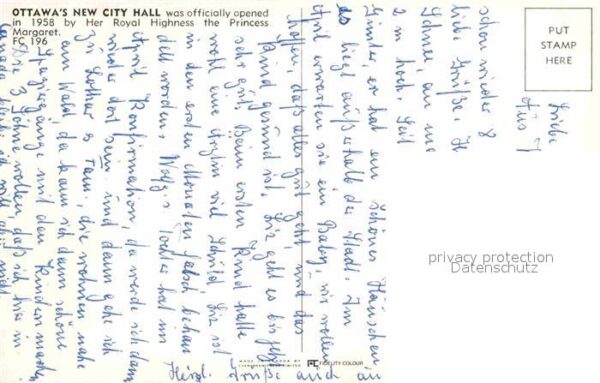 OTTAWA'S NEW CITY HALL was officially opened
in 1958 by Her Royal Highness the Princess
Margaret.
FC 196
PUT
STAMP
HERE
Liebe
schon wieder 8
liebe Grüße.
Schnee, an
2 m hoch. Seit
Günter er hat ein schönes Häuschen
es liegt außerhalb der Stadt. Im
April erwarten sie ein Baby, wir wollen
hoffen, daß alles gut geht, und das
Kind gesund ist. geht es bis jetzt
sehr gut. Beim ersten Kind hatte
wohl eine Ärztin viel Schuld sie ist
in den ersten Monaten falsch behan
delt worden. Tochter hat im
April Konfirmation, da werde ich dann
wieder dort sein und dann gehe ich
zu Lothar die wohnen nahe
am Wald, da kann ich dann schöne
Spaziergänge mit den Kindern mache
3 wollen, daß ich hier in
Herzl. Grüße auch an
FIDELITY COLOUR
privacy protection
Datenschutz